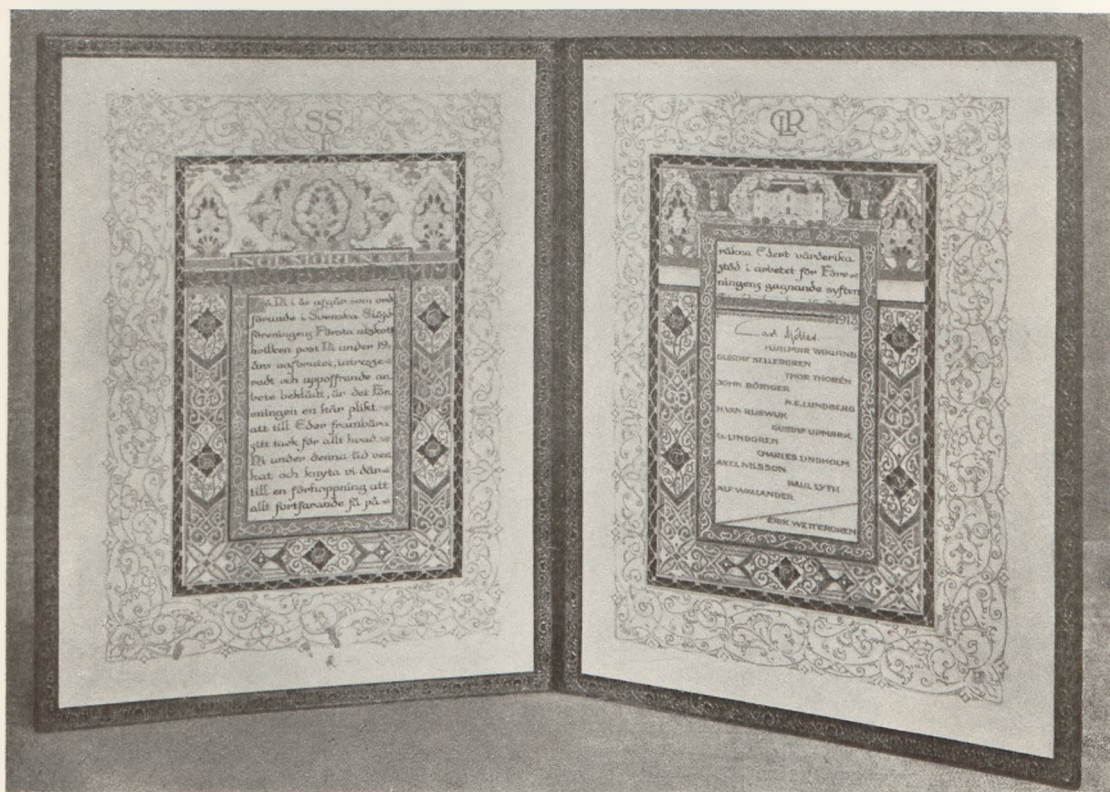 SS
F
Då Ni i år afgår som ord
förande i Svenska Slöjd
föreningens Första utskott
hvilken post Ni under 19
års
och uppoffrande ar
bete beklädt, är det För
eningen en kär plikt
att till Eder frambära
sitt tack för allt hvad
Ni under denna tid ver
kat och knyta vi där
till en förhoppning att
allt fortfarande få på
GLR
räkna Edert värderika
stöd i arbetet för Före
ningens gagnande syften
1913
Carl Möller.
HJALMAR WIKLUND
GUSTAF SELLERGREN
THOR THORÉN
JOHN BÖTTIGER
N.E. LUNDBERG
H. VAN RIJSWIJK
GUSTAF UPMARK
D. LINDGREN
CHARLES LINDHOLM
AXEL NILSSON
PAUL LYTH
ALF WALLANDER
ERIK WETTERGREN